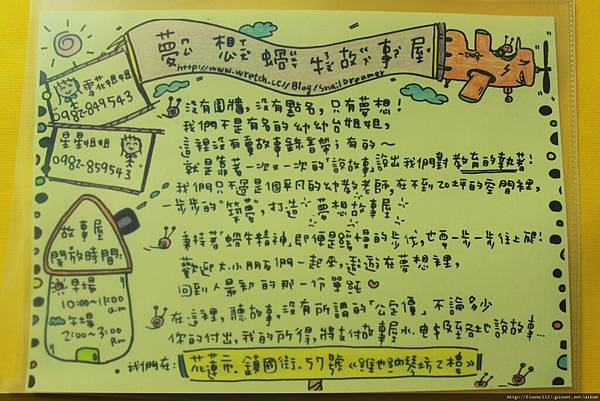 夢想蝸牛故事屋
http://www.wretch.cc/Blog/SnailDreamer
雪花姐姐
0982-849543
星星姐姐
0982-859543
沒有圍牆,沒有點名,只有夢想!
我們不是有名的幼幼台姐姐,
這裡沒有賣故事錄音帶;有的~
就是靠著一次又一次的「說故事」說出我們對教育的執著!
我們只不過是個平凡的幼教老師,在不到20坪的空間裡,
一步步的"築夢",打造 夢想故事屋
秉持著"蝸牛精神"即便是緩慢的步伐,也要一步一步往上爬!
歡迎大小朋友們一起來,遨遊在夢想裡,
回到人最初的那一份單純
在這裡,聽故事,沒有所謂的「公定價」不論多少
你的付出,我的所得,將支付故事屋水.電.&至各地說故事...
故事屋
開放時間:
早場
10:00~11:00
a.m
午場
2:00~3:00
P.m
我們在:
花蓮市.鎮國街.57號《維也納琴坊2樓》
http://flower1121.pixnet.net/album